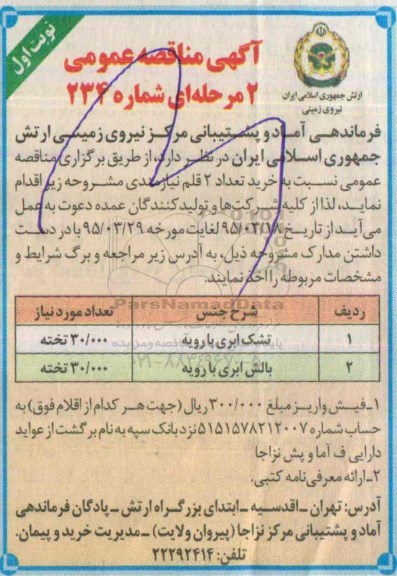 نوبت اول
آگهی مناقصه عمومی
۲ مرحله‌ای شماره ۲۳۴
ارتش جمهوری اسلامی ایران
نیروی زمینی
فرماندهی آماد و پشتیبانی مرکز نیروی زمینی ارتش
جمهوری اسلامی ایران در نظر دارد، از طریق برگزاری مناقصه
عمومی نسبت به خرید تعداد ۲ قلم نیازمندی مشروحه زیر اقدام
نماید، لذا از کلیه شرکت‌ها و تولیدکنندگان عمده دعوت به عمل
می‌آید از تاریخ ۹۵/۰۳/۱۸ لغایت مورخه ۹۵/۰۳/۲۹ با در دست
داشتن مدارک مشروحه ذیل، به آدرس زیر مراجعه و برگ شرایط و
مشخصات مربوطه را اخذ نمایند.
ParsNamadData
ردیف شرح جنس تعداد مورد نیاز
۱ تشک ابری با رویه ۳۰/۰۰۰ تخته
۲ بالش ابری با رویه ۳۰/۰۰۰ تخته
۰۲۱-۸۸۳۴۹۶۷۰-۵
۱ـ فیش واریز مبلغ ۳۰۰/۰۰۰ ریال (جهت هر کدام از اقلام فوق) به
حساب شماره ۵۱۵۱۵۷۸۲۱۲۰۰۷ نزد بانک سپه به نام برگشت از عواید
دارایی ف آما و پش نزاجا
۲ـ ارائه معرفی‌نامه کتبی.
آدرس: تهران ـ اقدسیه ـ ابتدای بزرگراه ارتش ـ پادگان فرماندهی
آماد و پشتیبانی مرکز نزاجا (پیروان ولایت) ـ مدیریت خرید و پیمان.
تلفن: ۲۲۲۹۲۴۱۴